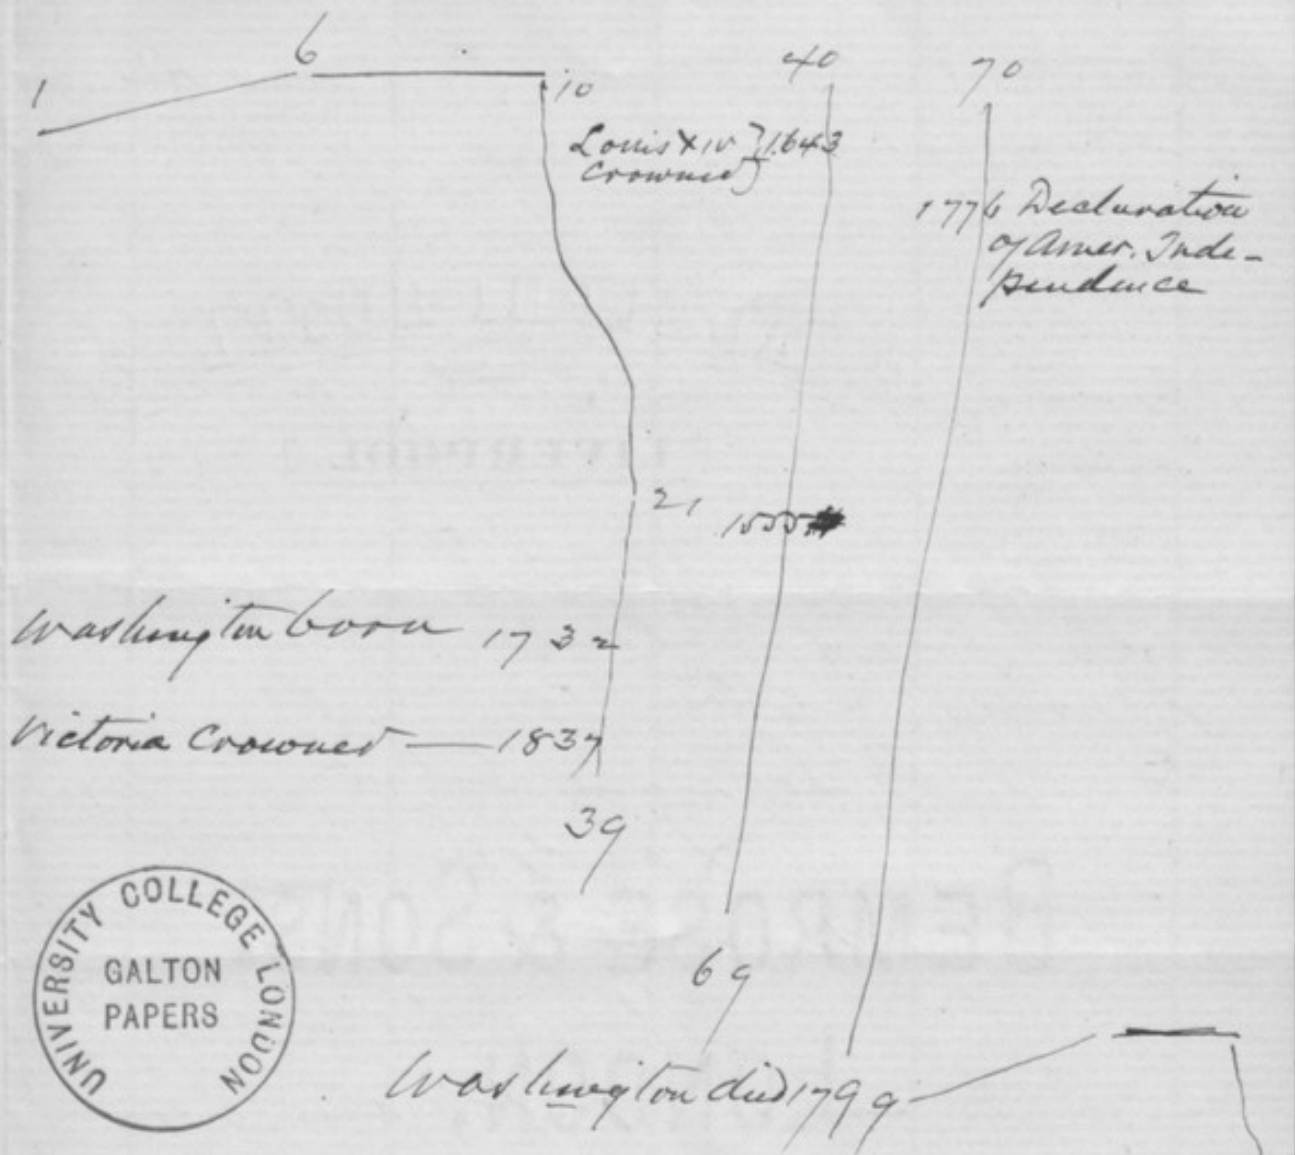 1
6
10
40
70
Louis XIV } 1643
Crowned
1776 Declaration
of Amer. Inde-
pendence
21
1555
Washington born 1732
Victoria Crowned — 1837
39
69
Washington died 1799
UNIVERSITY COLLEGE LONDON
GALTON
PAPERS